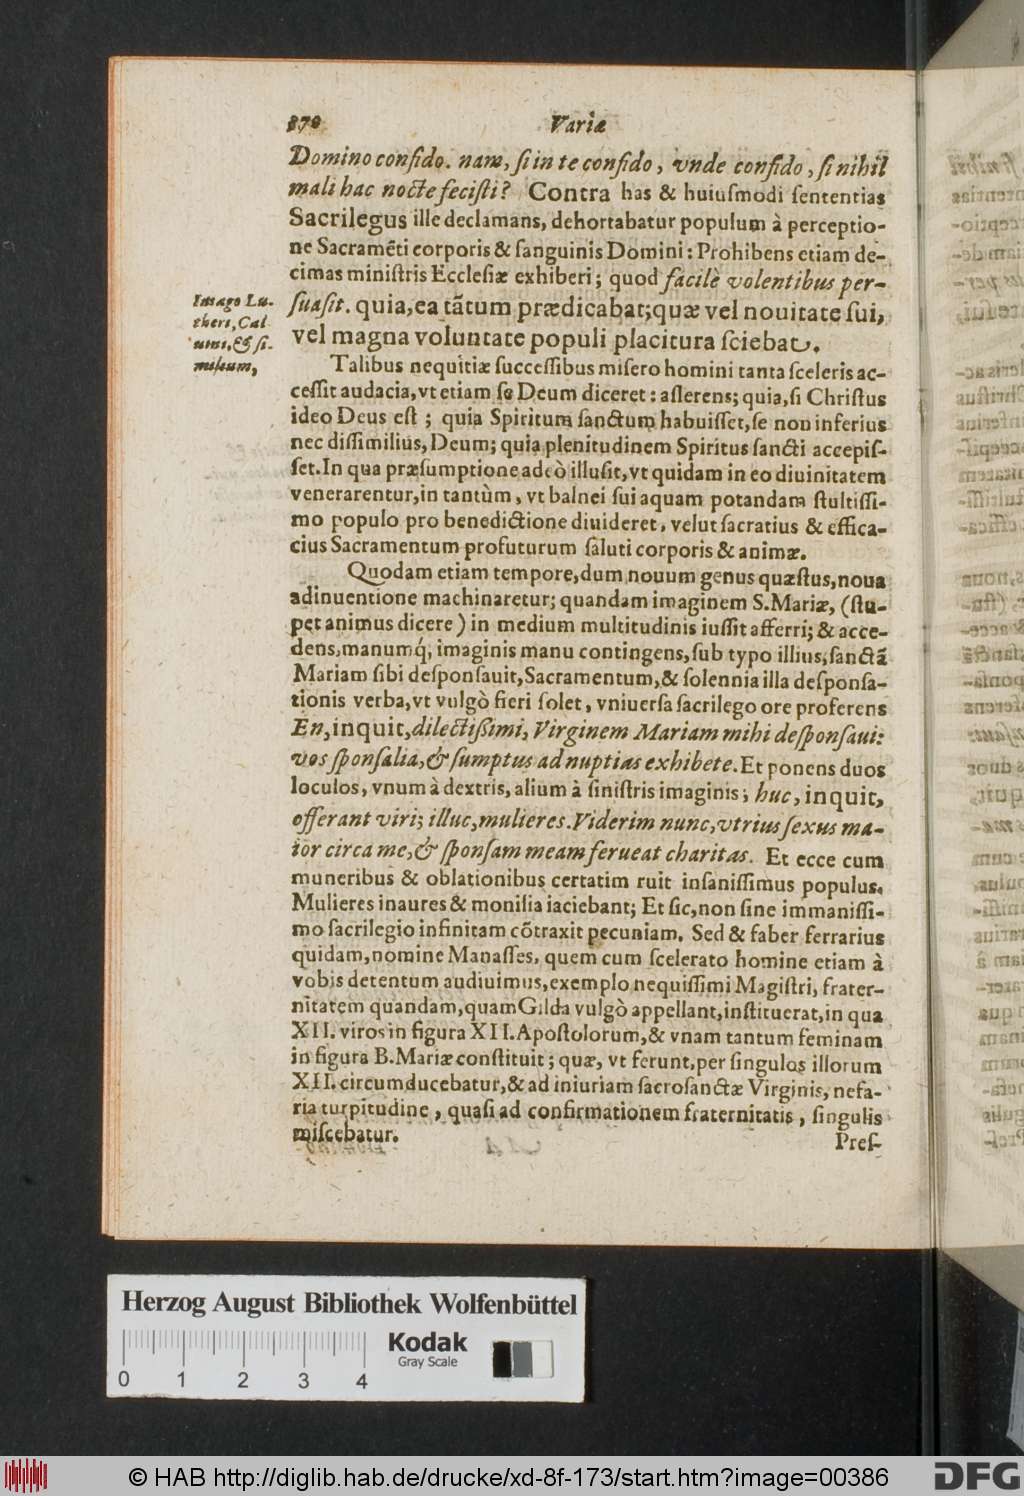 370 Variæ
Domino confido. nam, ſi in te confido, vnde confido, ſi nihil
mali hac nocte feciſti? Contra has & huiuſmodi ſententias
Sacrilegus ille declamans, dehortabatur populum à perceptio-
ne Sacramēti corporis & ſanguinis Domini: Prohibens etiam de-
cimas miniſtris Eccleſiæ exhiberi; quod facilè volentibus per-
ſuaſit. quia, ea tãtum prædicabat; quæ vel nouitate ſui,
vel magna voluntate populi placitura ſciebat.
Imago Lu-
theri, Cal
uini, & ſi-
milium,
Talibus nequitiæ ſucceſſibus miſero homini tanta ſceleris ac-
ceſſit audacia, vt etiam ſe Deum diceret: aſſerens; quia, ſi Chriſtus
ideo Deus eſt; quia Spiritum ſanctum habuiſſet, ſe non inferius
nec diſſimilius, Deum; quia plenitudinem Spiritus ſancti accepiſ-
ſet. In qua præſumptione adeò illuſit, vt quidam in eo diuinitatem
venerarentur, in tantùm, vt balnei ſui aquam potandam ſtultiſſi-
mo populo pro benedictione diuideret, velut ſacratius & effica-
cius Sacramentum profuturum ſaluti corporis & animæ.
Quodam etiam tempore, dum nouum genus quæſtus, noua
adinuentione machinaretur; quandam imaginem S. Mariæ, (ſtu-
pet animus dicere) in medium multitudinis iuſſit afferri; & acce-
dens, manumq́; imaginis manu contingens, ſub typo illius, ſanctã
Mariam ſibi deſponſauit, Sacramentum, & ſolennia illa deſponſa-
tionis verba, vt vulgò fieri ſolet, vniuerſa ſacrilego ore proferens
En, inquit, dilectiſſimi, Virginem Mariam mihi deſponſaui:
vos ſponſalia, & ſumptus ad nuptias exhibete. Et ponens duos
loculos, vnum à dextris, alium à ſiniſtris imaginis; huc, inquit,
offerant viri; illuc, mulieres. Viderim nunc, vtrius ſexus ma-
ior circa me, & ſponſam meam ferueat charitas. Et ecce cum
muneribus & oblationibus certatim ruit inſaniſſimus populus.
Mulieres inaures & monilia iaciebant; Et ſic, non ſine immaniſſi-
mo ſacrilegio infinitam cõtraxit pecuniam. Sed & faber ferrarius
quidam, nomine Manaſſes, quem cum ſcelerato homine etiam à
vobis detentum audiuimus, exemplo nequiſſimi Magiſtri, frater-
nitatem quandam, quam Gilda vulgò appellant, inſtituerat, in qua
XII. viros in figura XII. Apoſtolorum, & vnam tantum feminam
in figura B. Mariæ conſtituit; quæ, vt ferunt, per ſingulos illorum
XII. circumducebatur, & ad iniuriam ſacroſanctæ Virginis, nefa-
ria turpitudine, quaſi ad confirmationem fraternitatis, ſingulis
miſcebatur.
Preſ-
Herzog August Bibliothek Wolfenbüttel
Kodak
Gray Scale
0 1 2 3 4
© HAB http://diglib.hab.de/drucke/xd-8f-173/start.htm?image=00386
DFG